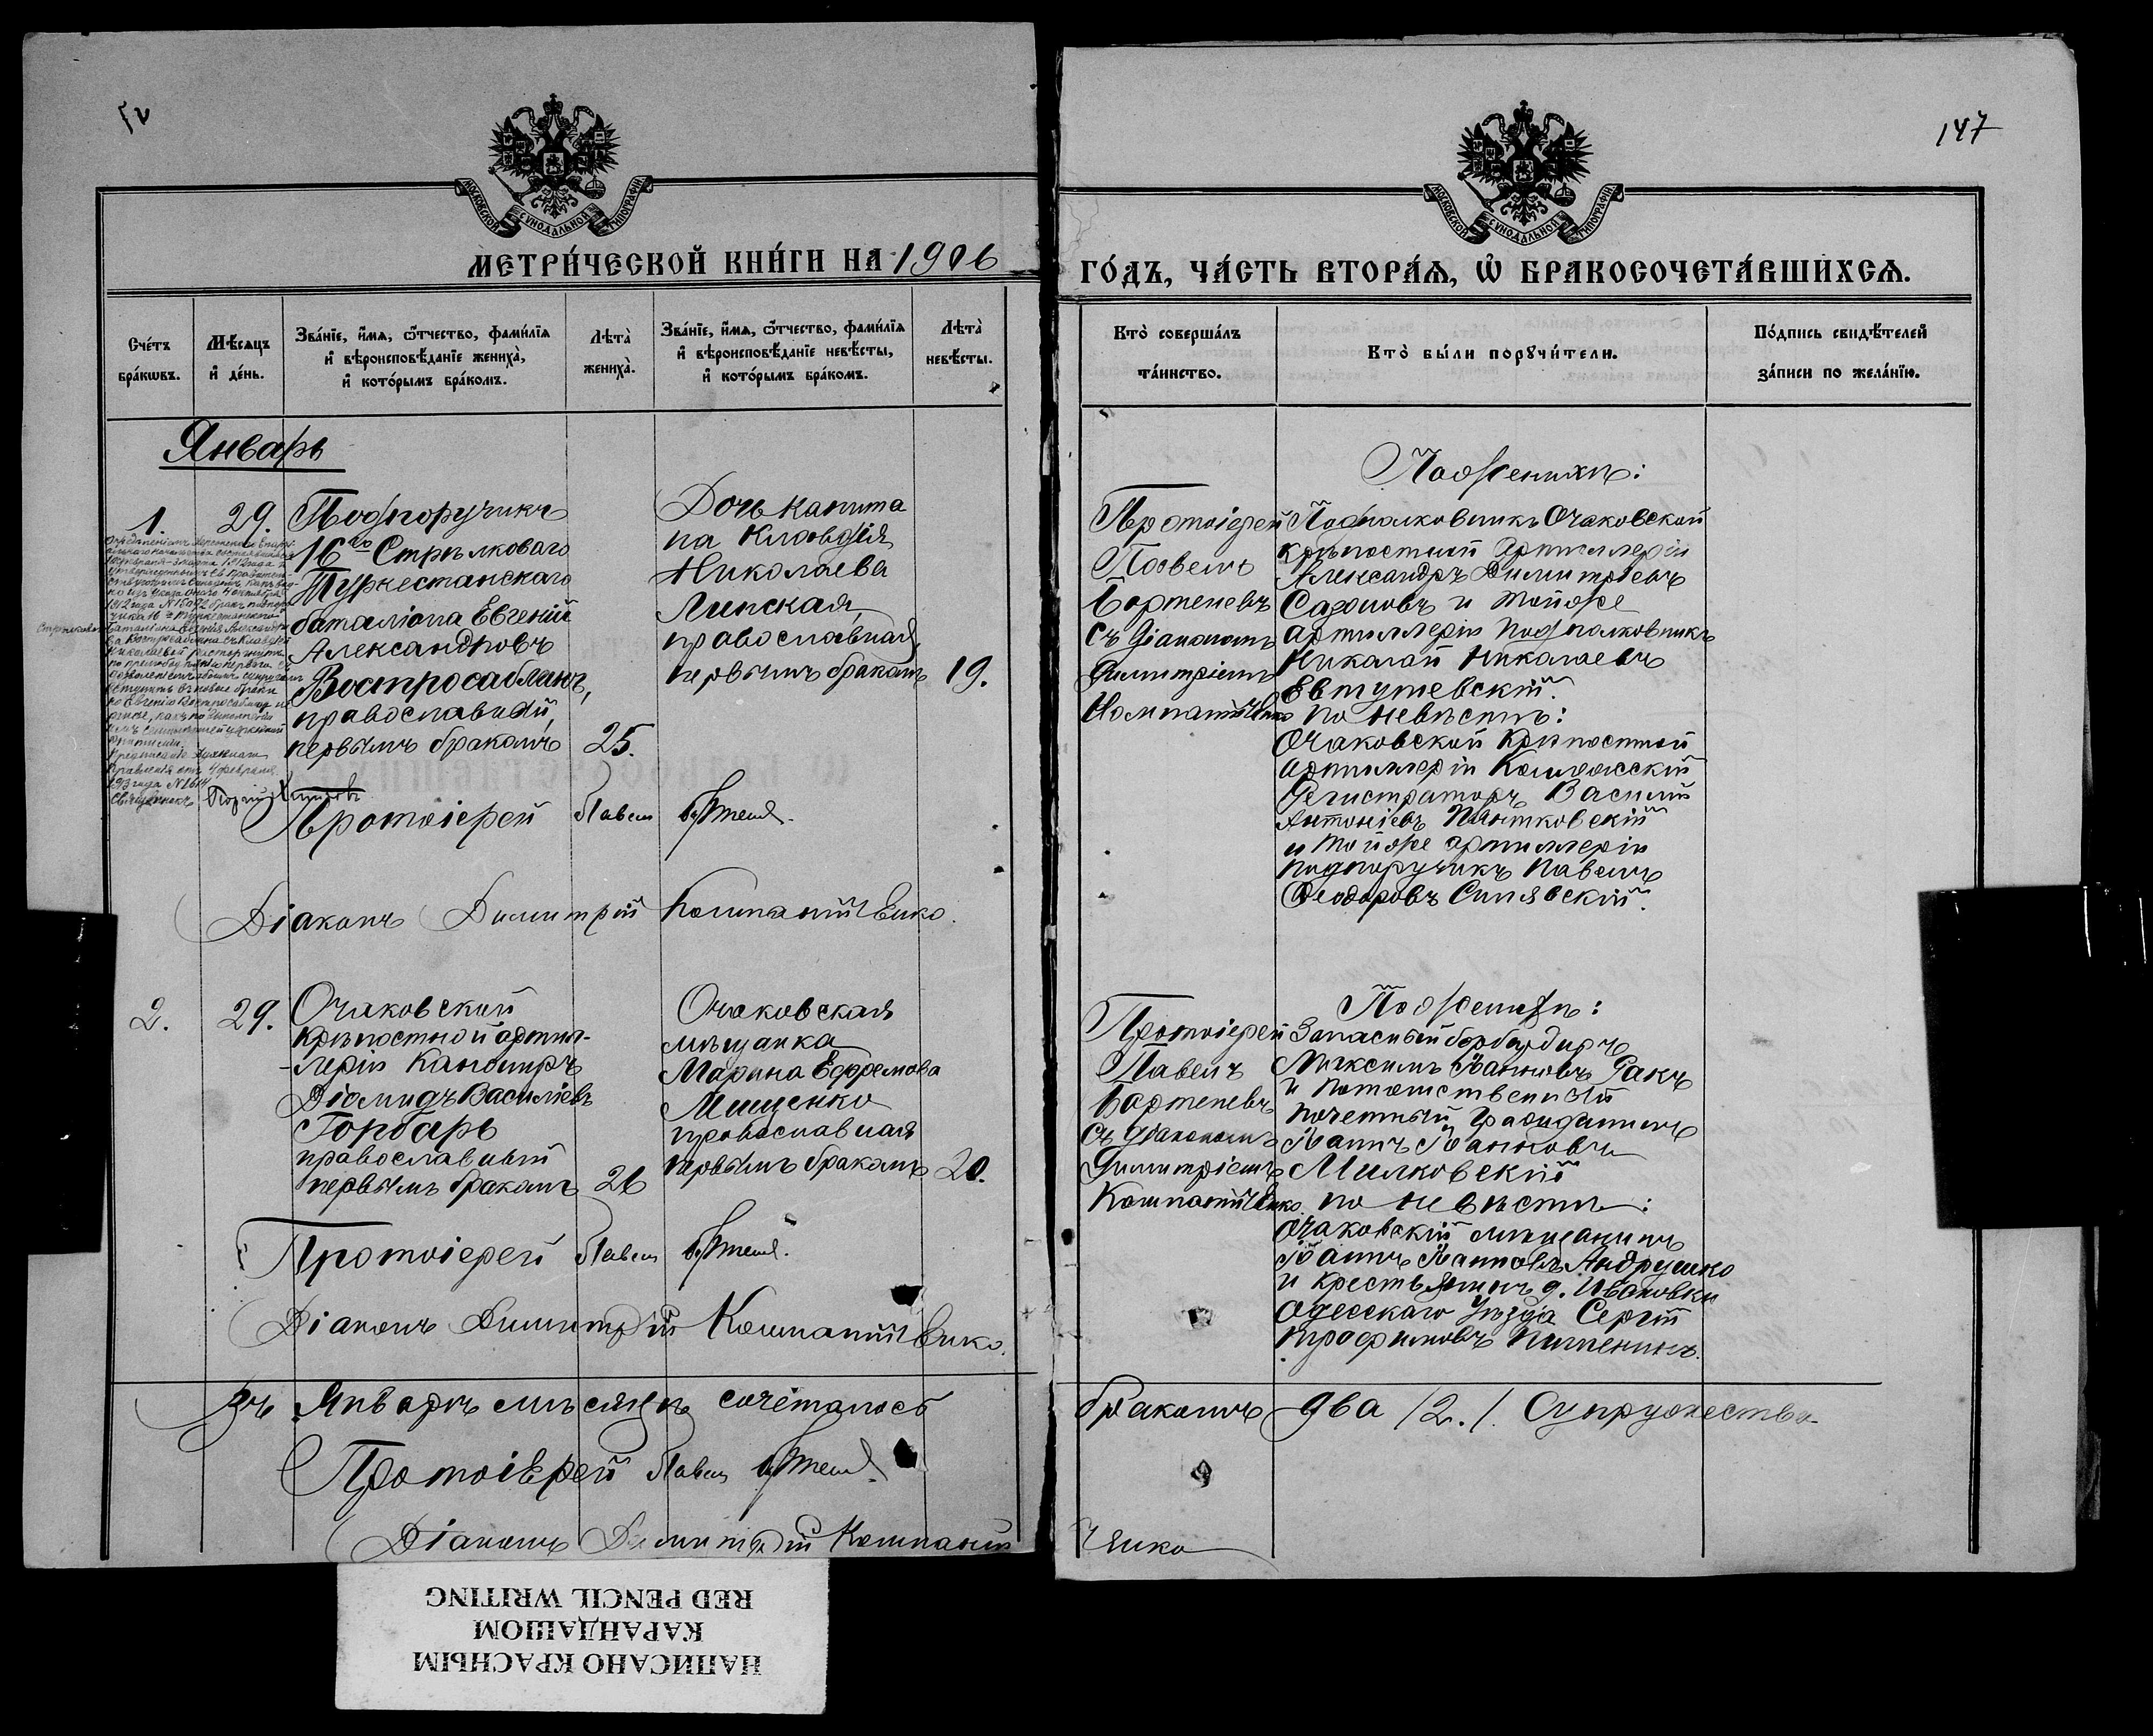 147
МОСКОВСКОЙ СУНОДАЛЬНОЙ ТИПОГРАФІИ
МОСКОВСКОЙ СУНОДАЛЬНОЙ ТИПОГРАФІИ
МЕТРИ́ЧЕСКОЙ КНИ́ГИ НА 1906
ГО́ДЪ, ЧА́СТЬ ВТОРА́Ѧ, Ѽ БРАКОСОЧЕТА́ВШИХСѦ.
Сче́тъ
бра́кѡвъ.
Мѣ́сяцъ
и҆ де́нь.
Зва́нїе, и҆́мѧ, ѻ҆́тчество, фами́лїѧ
и҆ вѣроисповѣ́данїе жениха̀,
и҆ кото́рымъ бра́комъ.
Лѣта̀
жениха̀.
Зва́нїе, и҆́мѧ, ѻ҆́тчество, фами́лїѧ
и҆ вѣроисповѣ́данїе невѣ́сты,
и҆ кото́рымъ бра́комъ.
Лѣта̀
невѣ́сты.
Кто̀ соверша́лъ
та́инство.
Кто̀ бы́ли порꙋчи́тели.
По́дпись свидѣ́телей
за́писи по жела́нїю.
Январь
1.
29.
Подпоручикъ
16го Стрѣлковаго
Туркестанскаго
баталіона Евгеній
Александровъ
Востросаблинъ,
православный,
первымъ бракомъ
25.
Дочь капита
на Клавдія
Николаева
Липская,
православная,
первымъ бракомъ
19.
Протоіерей
Павелъ
Бортеневъ
съ діакономъ
Димитріемъ
Компанійченко
По женихѣ:
Подполковникъ Очаковской
крѣпостной артиллеріи
Александръ Димитріевъ
Сазоновъ и тойже
артиллеріи подполковникъ
Николай Николаевъ
Евтушевскій.
по невѣстѣ:
Очаковской крѣпостной
артиллеріи Коллежскій
Регистраторъ Василій
Антоніевъ Пянтковскій
и тойже артиллеріи
подпоручикъ Павелъ
Ѳеодоровъ Синявскій.
Протоіерей Павелъ
Діаконъ Димитрій Компанійченко.
2.
29.
Очаковской
крѣпостной артил-
-леріи Канониръ
Діомидъ Василіевъ
Горбарь
православный
первымъ бракомъ
26
Очаковская
мѣщанка
Марина Ефремова
Мищенко
православная
первымъ бракомъ
20.
Протоіерей
Павелъ
Бортеневъ
съ діакономъ
Димитріемъ
Компанійченко.
По женихѣ:
Запасный бомбардиръ
Максимъ Іоанновъ Ракъ
и потомственный
почетный гражданинъ
Іоаннъ Іоанновъ
Милковскій
по невѣстѣ:
Очаковскій мѣщанинъ
Іоаннъ Іоанновъ Андрушко
и крестьянинъ д. Ивановки
Одесскаго Уѣзда Сергій
Трофимовъ Пименинъ.
Протоіерей Павелъ
Діаконъ Димитрій Компанійченко.
Въ Январѣ мѣсяцѣ сочеталось
бракомъ два /2./ Супружества
Протоіерей Павелъ
Діаконъ Димитрій Компаній
ченко
НАПИСАНО КРАСНЫМ
КАРАНДАШОМ
RED PENCIL WRITING